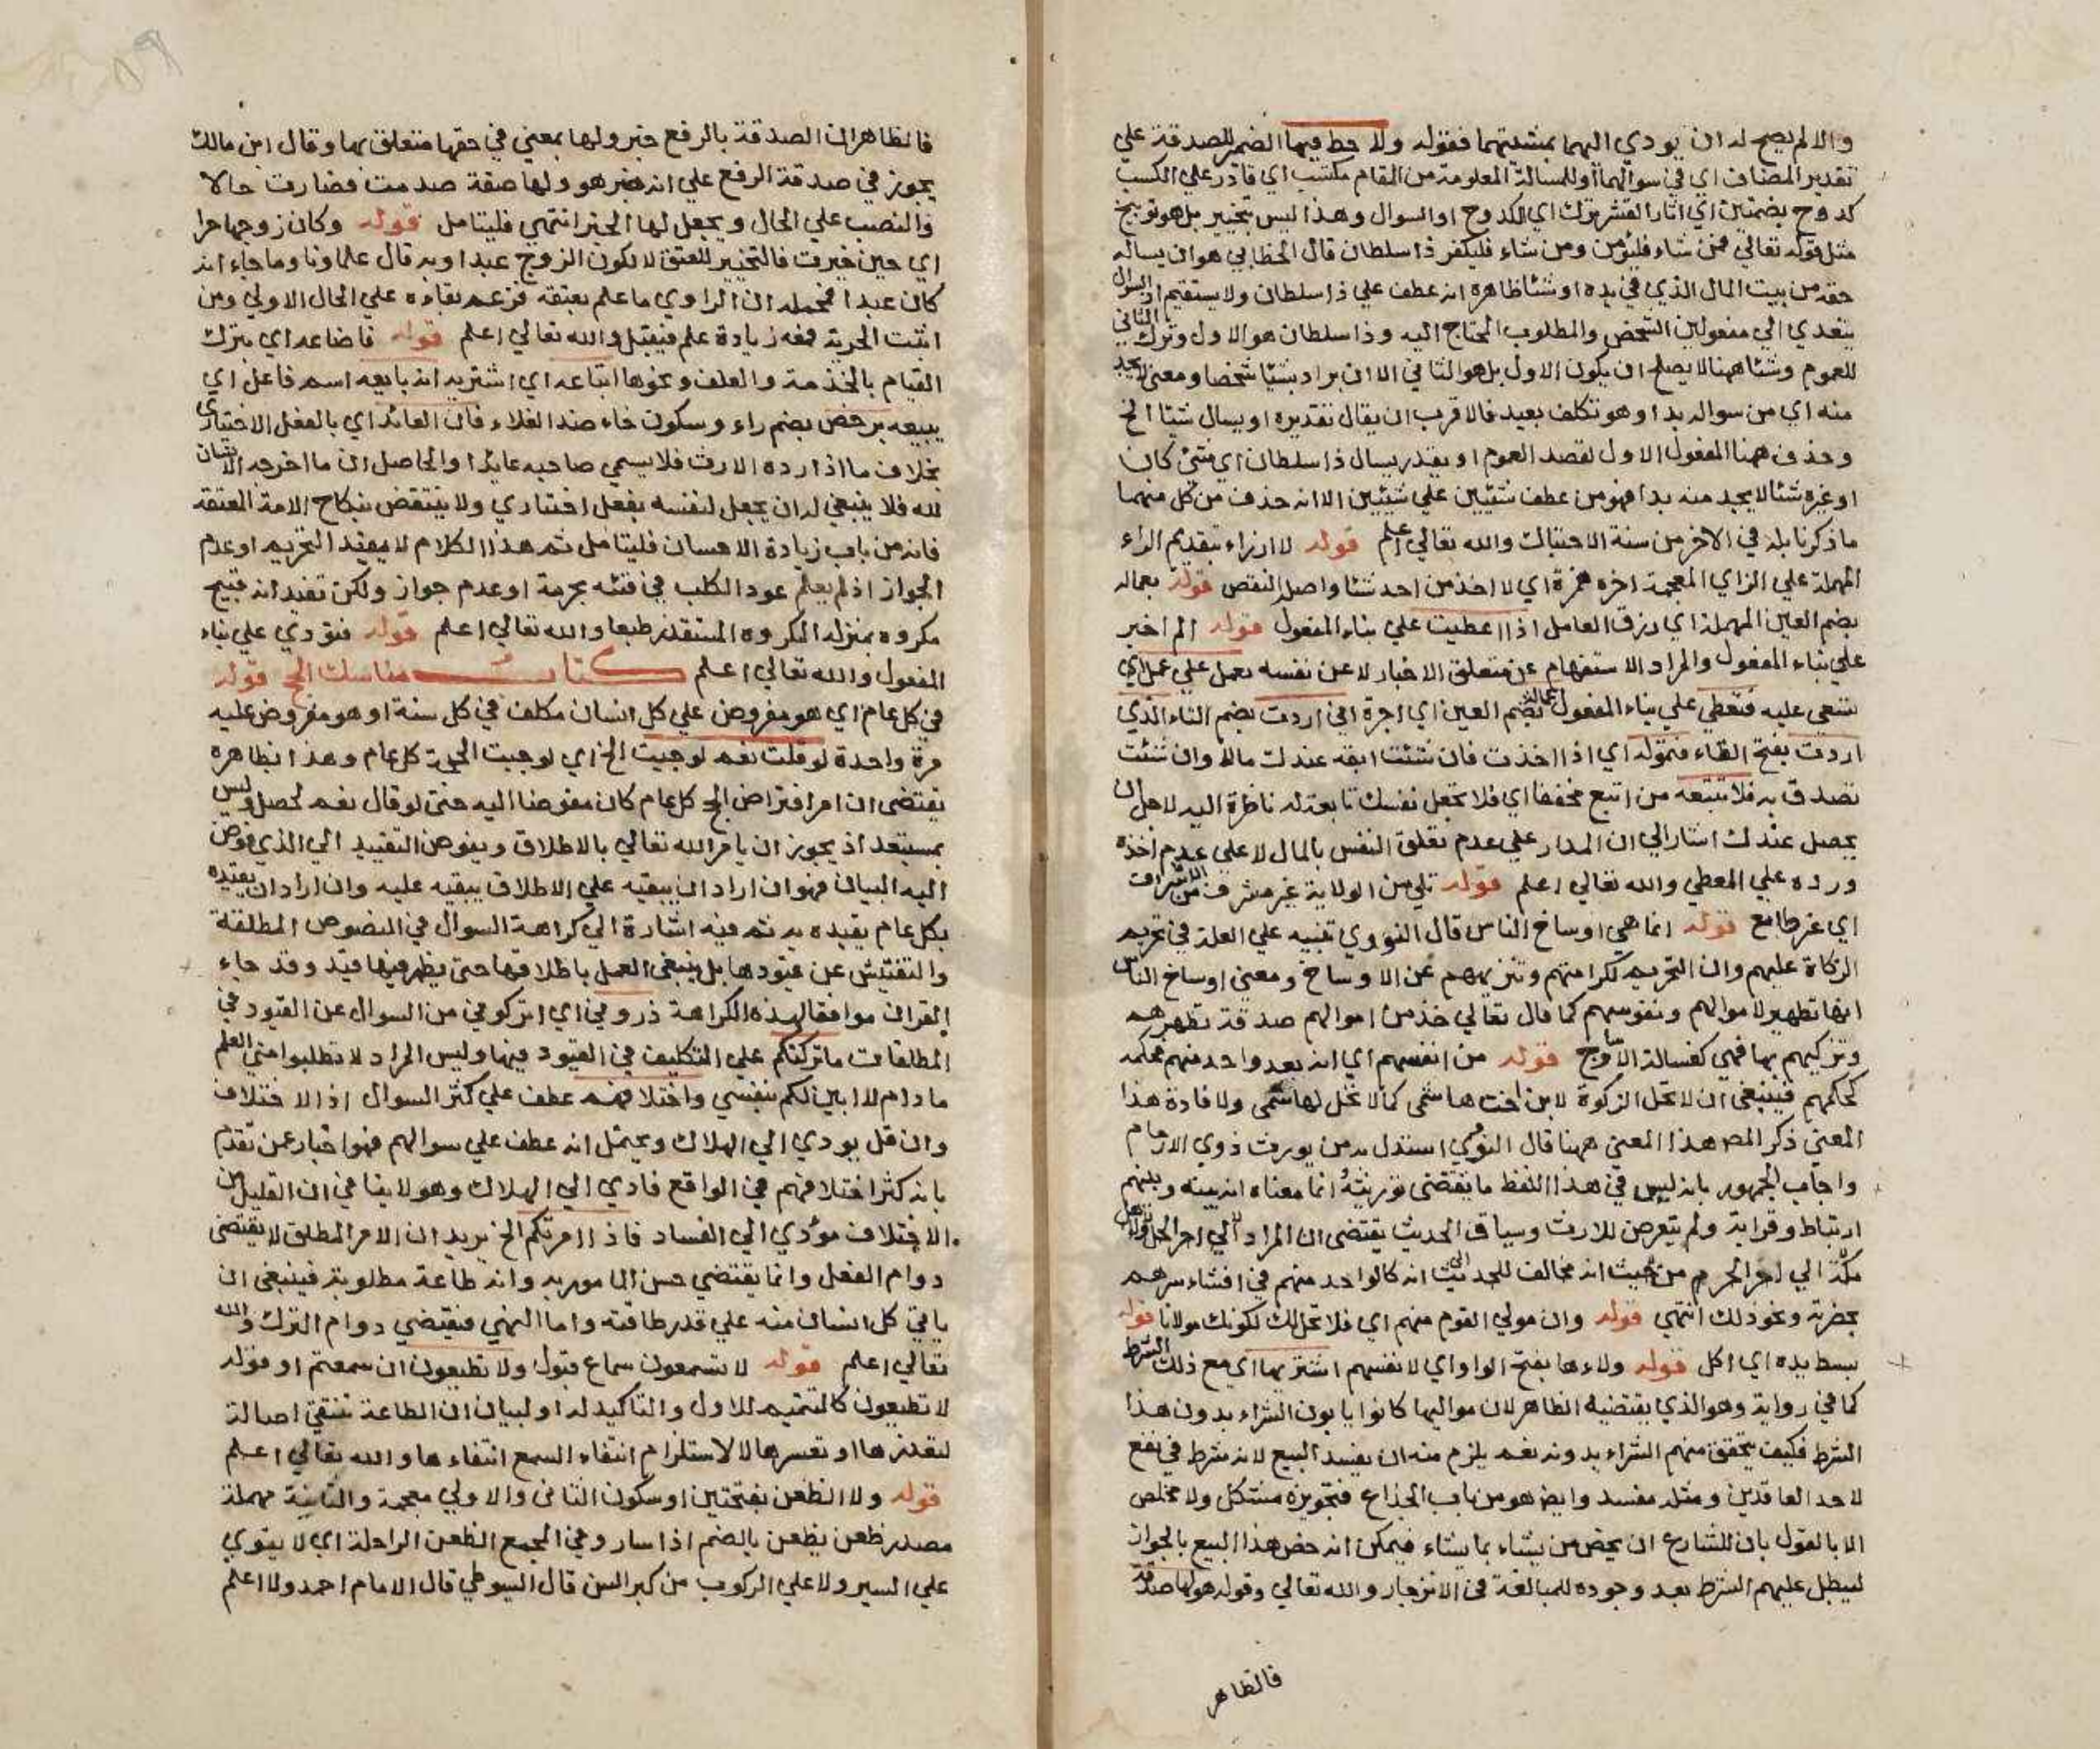 والا لم يصح له ان يودي اليهما بمشيتهما فقوله ولا حط فيها الضمير للصدقة علي
تقدير المضاف اي في سوالهما او للمسالة المعلومة من المقام مكتسب اي قادر علي الكسب
كدوح بضمتين اي اثار القشر يترك اي الكدوح او السوال وهذا ليس بتخيير بل هو توبيخ
مثل قوله تعالي فمن شاء فليؤمن ومن شاء فليكفر ذا سلطان قال الخطابي هو ان يساله
حقه من بيت المال الذي في يده او شئا ظاهره انه عطف علي ذا سلطان ولا يستقيم اذ السوال
يتعدي الي مفعولين الشخص والمطلوب المحتاج اليه وذا سلطان هو الاول وترك الثاني
للعموم وشئا ههنا لا يصلح ان يكون الاول بل هو الثاني الا ان يراد بشيئا شخصا ومعني لا يجد
منه اي من سواله بدا وهو تكلف بعيد فالاقرب ان يقال تقديره او يسال شيئا الخ
وحذف ههنا المفعول الاول لقصد العموم او يقدر يسال ذا سلطان اي شئ كان
او غيره شئا لا يجد منه بدا فهو من عطف شئيين علي شيئين الا انه حذف من كل منهما
ما ذكر نابله في الاخر من سنة الاحتباك والله تعالي اعلم قوله لا ارزاء بتقديم الراء
المهملة علي الزاي المعجمة اخره همزة اي لا اخذ من احد شئا واصل النقص قوله بعماله
بضم العين المهملة اي رزق العامل اذا اعطيت علي بناء المفعول قوله الم اخبر
علي بناء المفعول والمراد الاستفهام عن متعلق الاخبار لا عن نفسه تعمل علي عمل اي
تسعي عليه فتعطي علي بناء المفعول عمالة بضم العين اي اجرة اني اردت بضم التاء الذي
اردت بفتح التاء فتموله اي اذا اخذت فان شئت ابقه عندك مالا وان شئت
تصدق به فلا تتبعه من اتبع مخففا اي فلا تجعل نفسك تابعة له ناظرة اليه لاجل ان
يحصل عندك اشار الي ان المدار علي عدم تعلق النفس بالمال لا علي عدم اخذه
ورده علي المعطي والله تعالي اعلم قوله تلي من الولاية غير مشرف من الاشراف
اي غير طامع قوله انما هي اوساخ الناس قال النووي تنبيه علي العلة في تحريم
الزكاة عليهم وان التحريم لكرامتهم وتنزيههم عن الاوساخ ومعني اوساخ الناس
انها تطهير لاموالهم ونفوسهم كما قال تعالي خذ من اموالهم صدقة تطهرهم
وتزكيهم بها فهي كغسالة الاوساخ قوله من انفسهم اي انه يعد واحد منهم فحكمه
كحكمهم فينبغي ان لا تحل الزكوة لابن اخت هاشمي كما لا تحل لهاشمي ولافادة هذا
المعني ذكر المصـ هذا المعني ههنا قال النووي استدل به من يورث ذوي الارحام
واجاب الجمهور بانه ليس في هذا اللفظ ما يقتضي توريثه انما معناه انه بينه وبينهم
ارتباط وقرابة ولم يتعرض للارث وسياق الحديث يقتضي ان المراد
بحضرته ونحو ذلك انتهي قوله وان مولي القوم منهم اي فلا تحل لك لكونك مولانا قوله
بسط يده اي اكل قوله ولاءها بفتح الواو اي لانفسهم اشتريها اي مع ذلك الشرط
كما في رواية وهو الذي يقتضيه الظاهر لان مواليها كانوا يابون الشراء بدون هذا
الشرط فكيف يتحقق منهم الشراء بدونه نعم يلزم منه ان يفسد البيع لانه شرط في نفع
لاحد العاقدين ومثله مفسد وايضـ هو من باب الخداع فتجويزه مشكل ولا مخلص
الا بالقول بان للشارع ان يخص من يشاء بما يشاء فيمكن انه خص هذا البيع بالجواز
ليبطل عليهم الشرط بعد وجوده للمبالغة في الانزجار والله تعالي وقوله هو لها صدقة
فالظاهر
فالظاهر ان الصدقة بالرفع خبر ولها بمعني في حقها متعلق بها وقال ابن مالك
يجوز في صدقة الرفع علي انه خبر هو ولها صفة قدمت فصارت حالا
والنصب علي الحال ويجعل لها الخبر انتهي فليتامل قوله وكان زوجها حرا
اي حين خيرت فالتخيير للعتق لا لكون الزوج عبدا وبه قال علماونا وما جاء انه
كان عبدا فمحمله ان الراوي ما علم بعتقه فزعم بقاءه علي الحال الاولي ومن
اثبت الحرية فمعه زيادة علم فيقبل والله تعالي اعلم قوله فاضاعه اي بترك
القيام بالخدمة والعلف ونحوها ابتاعه اي اشتريه انه بايعه اسم فاعل اي
يبيعه برخص بضم راء وسكون خاء ضد الغلاء فان العائد اي بالفعل الاختياري
بخلاف ما اذا رده الارث فلا يسمي صاحبه عايدا والحاصل ان ما اخرجه الانسان
لله فلا ينبغي له ان يجعل لنفسه بفعل اختياري ولا ينتقض بنكاح الامة المعتقة
فانه من باب زيادة الاحسان فليتامل ثم هذا الكلام لا يفيد التحريم او عدم
الجواز اذ لم يعلم عود الكلب في قيئه بحرمة او عدم جواز ولكن تفيد انه قبيح
مكروه بمنزلة المكروه المستقذر طبعا والله تعالي اعلم قوله فتودي علي بناء
المفعول والله تعالي اعلم كتاب مناسك الحج قوله
في كل عام اي هو مفروض علي كل انسان مكلف في كل سنة او هو مفروض عليه
مرة واحدة لو قلت نعم لوجبت الخ اي لوجبت الحج كل عام وهذا بظاهره
يقتضي ان امر افتراض الحج كل عام كان مفوضا اليه حتي لو قال نعم لحصل وليس
بمستبعد اذ يجوز ان يامر الله تعالي بالاطلاق ويفوض التقييد الي الذي فوض
اليه البيان فهو ان اراد ان يبقيه علي الاطلاق يبقيه عليه وان اراد ان يقيده
بكل عام يقيده به ثم فيه اشارة الي كراهة السوال في النصوص المطلقة
والتفتيش عن قيودها بل ينبغي العمل باطلاقها حتي يظهر فيها قيد وقد جاء
القران موافقا لهذه الكراهة ذروني اي اتركوني من السوال عن القيود في
المطلقات ما تركتكم علي التكليف في القيود فيها وليس المراد لا تطلبوا مني العلم
ما دام لا ابين لكم بنفسي واختلافهم عطف علي كثر السوال اذ الاختلاف
وان قل يودي الي الهلاك ويحتمل انه عطف علي سوالهم فهو اخبار عمن تقدم
بانه كثر اختلافهم في الواقع فادي الي الهلاك وهو لا ينافي ان القليل من
الاختلاف مؤدي الي الفساد فاذا امرتكم الخ يريد ان الامر المطلق لا يقتضي
دوام الفعل وانما يقتضي حسن المامور به وانه طاعة مطلوبة فينبغي ان
ياتي كل انسان منه علي قدر طاقته واما النهي فيقتضي دوام الترك والله
تعالي اعلم قوله لا تسمعون سماع قبول ولا تطيعون ان سمعتم او قوله
لا تطيعون كالتتميم للاول والتاكيد له او لبيان ان الطاعة تنتفي اصالة
لتعذرها او تعسرها لا لاستلزام انتفاء السمع انتفاءها والله تعالي اعلم
قوله ولا الظعن بفتحتين او سكون الثاني والاولي معجمة والثانية مهملة
مصدر ظعن يظعن بالضم اذا سار وفي المجمع الظعن الراحلة اي لا يقوي
علي السير ولا علي الركوب من كبر السن قال السيوطي قال الامام احمد ولا اعلم